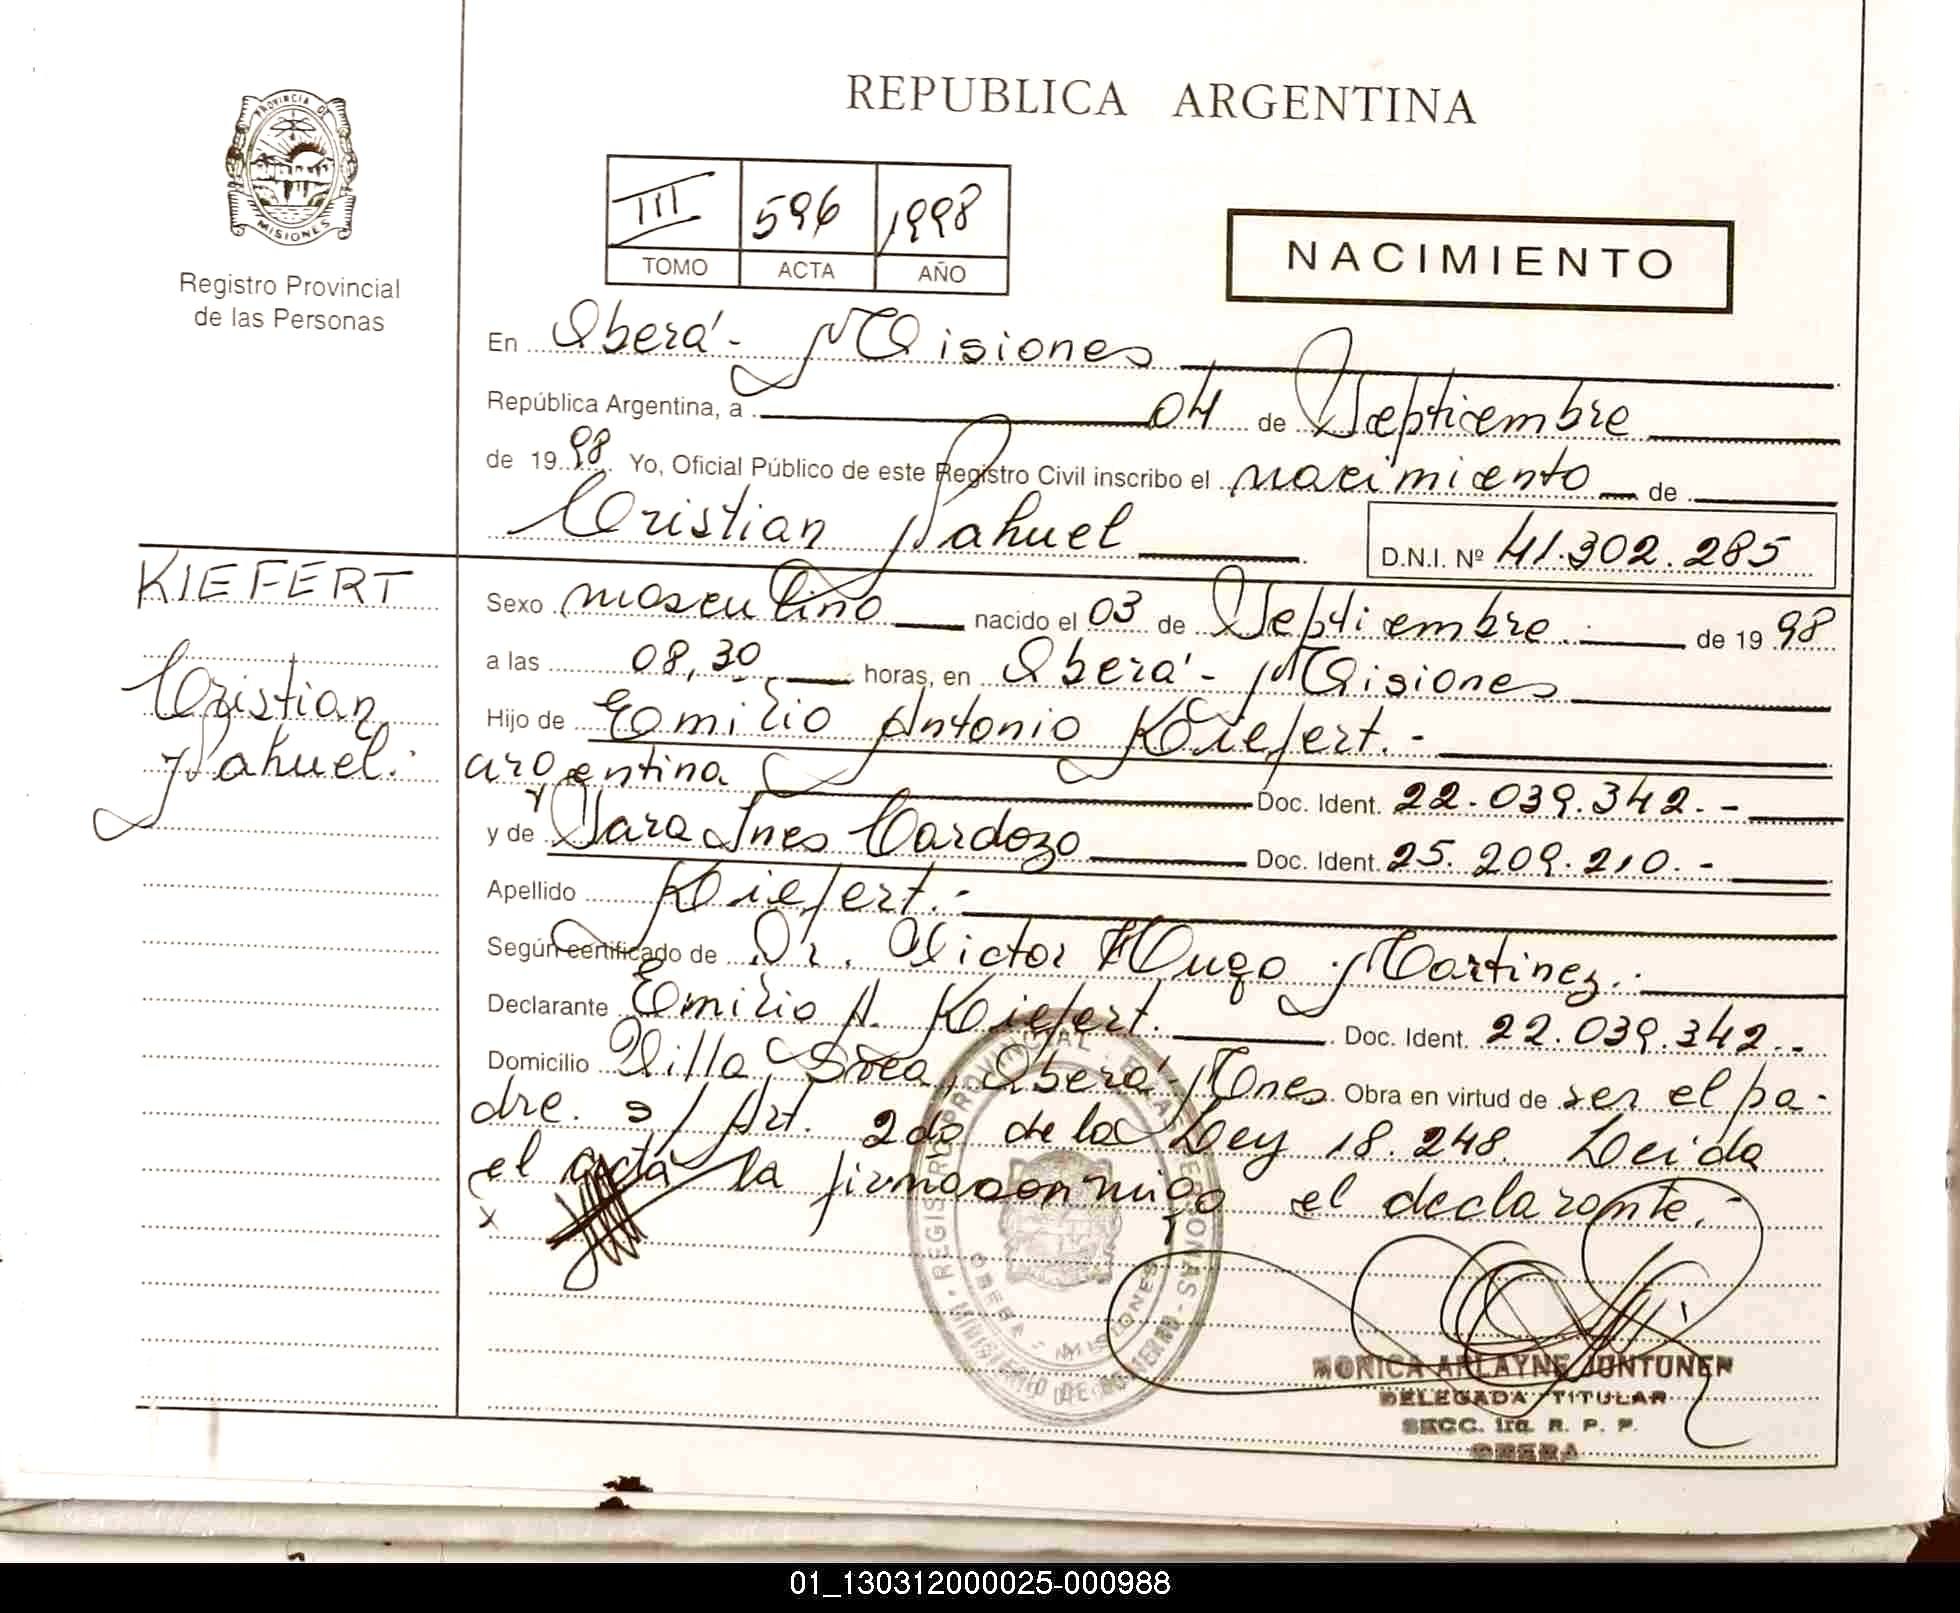 PROVINCIA DE
MISIONES
Registro Provincial
de las Personas
REPUBLICA ARGENTINA
III 596 1998
TOMO ACTA AÑO
NACIMIENTO
En Oberá - Misiones
República Argentina, a 04 de Septiembre
de 1998 Yo, Oficial Público de este Registro Civil inscribo el nacimiento de
Cristian Nahuel D.N.I. Nº 41.302.285
KIEFERT
Cristian
Nahuel.
Sexo masculino nacido el 03 de Septiembre de 1998
a las 08,30 horas, en Oberá - Misiones
Hijo de Emilio Antonio Kiefert.-
argentina Doc. Ident. 22.039.342.-
y de Sara Ines Cardozo Doc. Ident. 25.209.210.-
Apellido Kiefert.-
Según certificado de Dr. Victor Hugo Martinez.
Declarante Emilio A. Kiefert. Doc. Ident. 22.039.342.-
Domicilio Villa Svea, Oberá - Mnes. Obra en virtud de ser el pa-
dre. s/ Art. 2do de la Ley 18.248. Leida
el acta la firma conmigo el declarante.-
x
REGISTRO PROVINCIAL DE LAS PERSONAS
MINISTERIO DE GOBIERNO
OBERA - MISIONES
MONICA ARLAYNE JUNTUNEN
DELEGADA TITULAR
SECC. 1ra. R. P. P.
OBERA
01_130312000025-000988